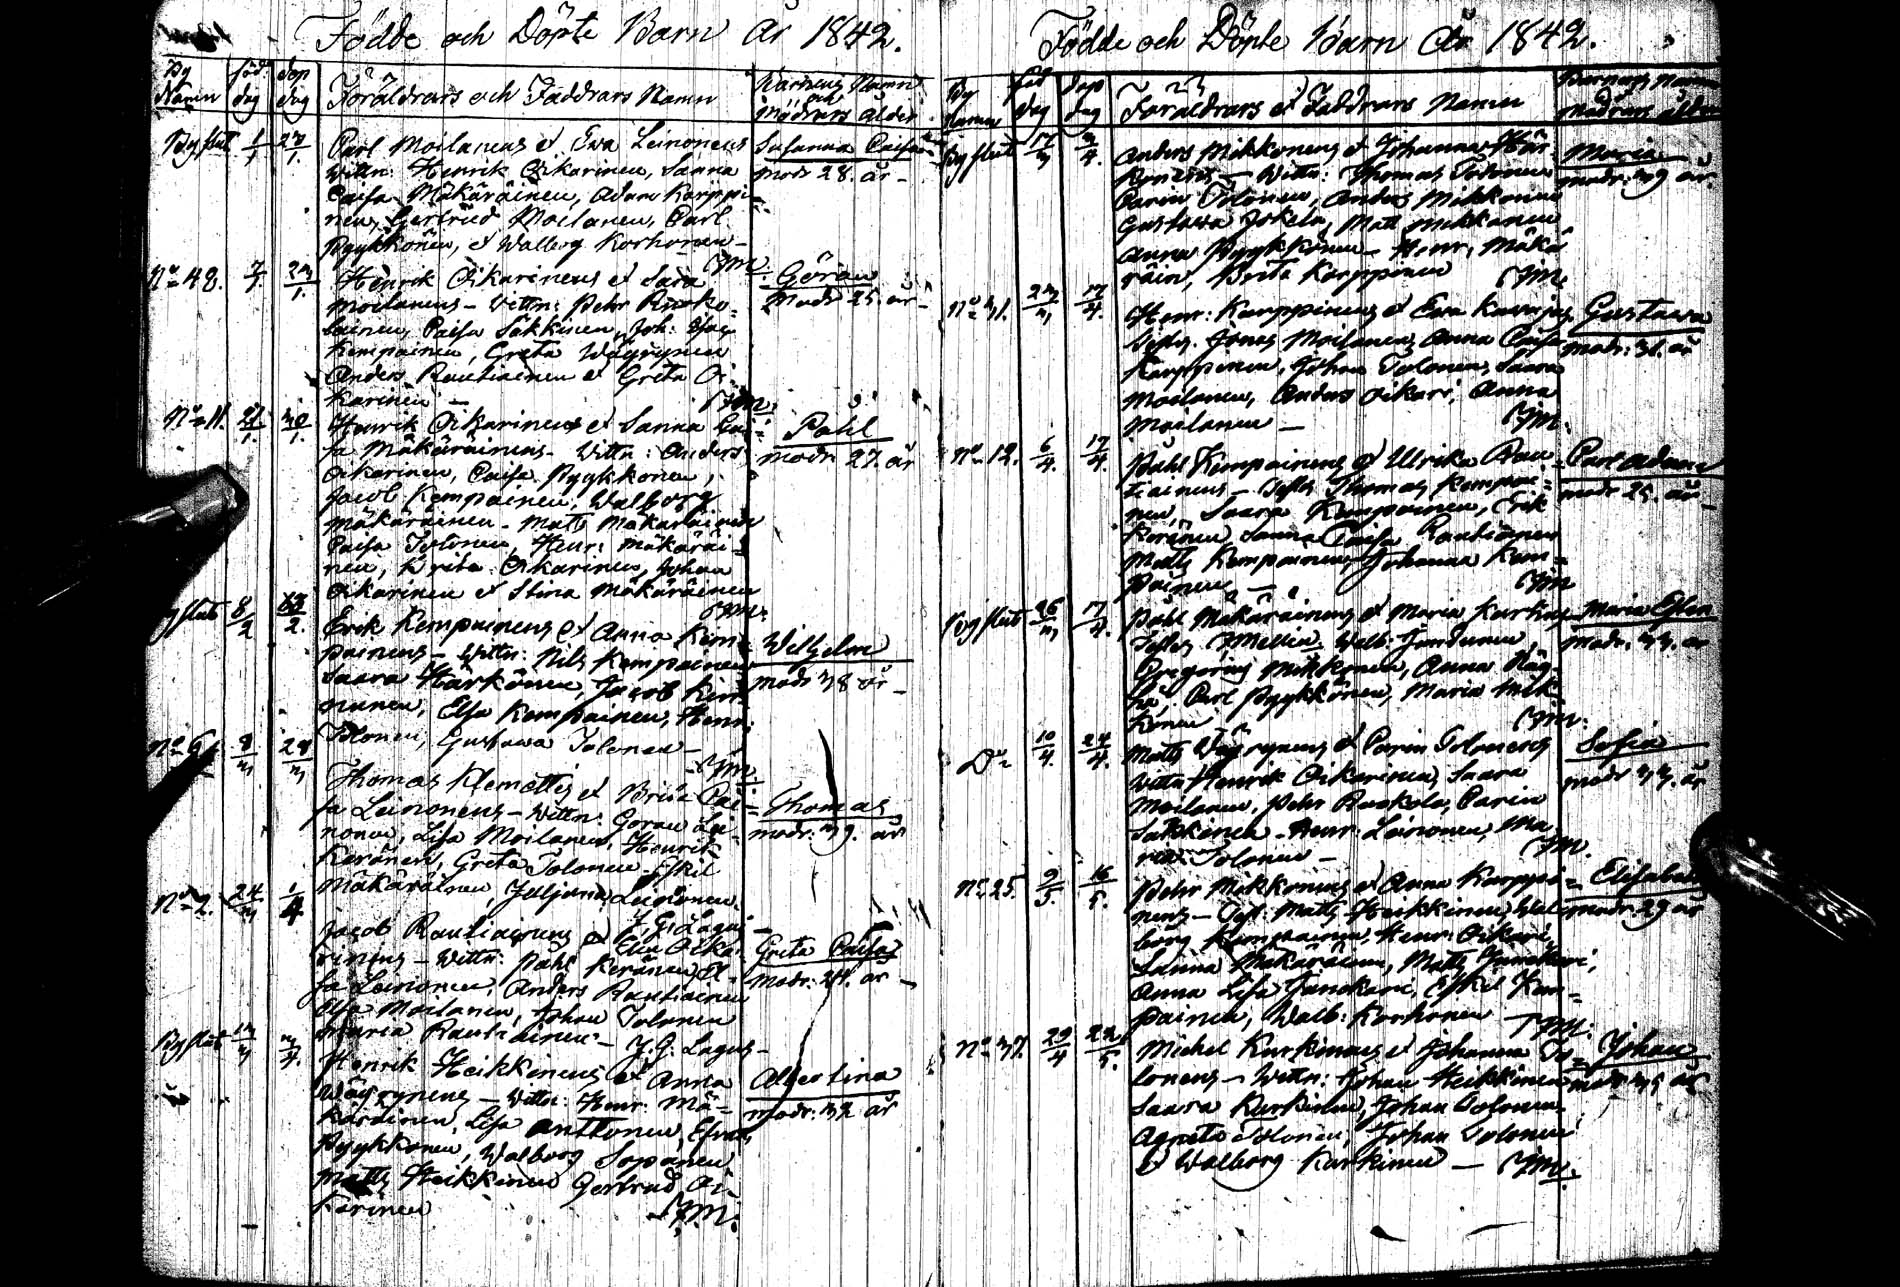 Födde och Döpte Barn år 1842.
By Namn
föd. dag
döp dag
Föräldrars och Faddrars Namn
Barnens Namn och Mödrars ålder
Byslut 1/1 23/1.
Carl Moilanens et Ewa Leinonens
Wittn: Henrik Oikarinen, Sanna
Caisa Mäkäräinen, Adam Karppi=
nen, Gertrud Moilanen, Carl
Pyykkönen, et Walborg Korhonen –
Susanna Caisa
modr 28. år –
No 48. 7/1. 23/1.
Henrik Oikarinens et Sara
Moilanens – Wittn: Pehr Ruoko=
lainen, Caisa Säkkinen, Joh:
Kempainen, Greta Wäyrynen
Anders Rautiainen et Greta Oi=
karinen –
Göran
Modr 25 år –
No 11. 21/1. 30/1.
Henrik Oikarinens et Sanna Cai=
sa Mäkäräinens – Wittn: Anders
Oikarinen, Caisa Pyykkonen,
Jacob Kempainen, Walborg
Mäkäräinen – Matts Mäkäräinen
Caisa Tolonen, Henr: Mäkäräi=
nen, Brita Oikarinen, Johan
Oikarinen et Stina Mäkäräinen
Påhl
modr 27. år
Byslut 8/2
Erik Kempainens et Anna Kem=
painens – Wittn: Nils Kempainen
Saara Härkönen, Jacob
nunen, Elsa Kempainen, Henr:
Tolonen, Gustawa Tolonen –
Wilhelm
modr 38 år –
No 6 8/3 28/3
Thomas Klemettis et Brita Cai=
sa Leinonens – Wittn: Göran Lei=
nonen, Lisa Moilanen, Henrik
Keränen, Greta Tolonen Eskil
Mäkäräinen, Juliana Leinonen.
J. G. Lagus –
Thomas
modr. 39. år
No 2. 24/3 1/4
Jacob Rautiainens et Elin Oika=
rinens – Wittn: Påhl Keränen, El=
sa Leinonen, Anders Rautiainen
Elsa Moilanen, Johan Tolonen
Maria Rautiainen – J. G. Lagus –
Greta Caisa
modr. 24. år –
Byslut 13/3 3/4.
Henrik Heikkinens et Anna
Wäyrynens – Wittn: Henr: Mä=
käräinen, Lisa Anttonen,
Pyykkonen, Walborg Sopanen
Matts Heikkinen Gertrud Oi=
karinen
Albertina
modr. 32 år
Födde och Döpte Barn År 1842.
By Namn
föd dag
döp dag
Föräldrars et Faddrars Namn
Barnens Namn
Mödrars ålder
Byslut 17/3 3/4.
Anders Mikkonens et Johanna Här=
könens – Wittn: Thomas Tolonen
Carin Tolonen, Anders Mikkonen
Gustawa Jokela, Matt Mikkonen
Anna Pyykkönen – Henr: Mäkä
räin, Brita Karppinen
Maria
modr. 39 år.
No 31. 23/3 17/4.
Henr: Karppinens et Ewa
Testes. Jonas Moilanen, Anna Caisa
Karppinen, Johan Tolonen, Saara
Moilanen, Anders Oikari, Anna
Moilanen –
Gustawa
modr: 31. år
No 12. 6/4. 17/4.
Påhl Kempainens et Ulrika Rau=
tiainens – Testes Thomas Kempai=
nen, Saara Kempainen, Erik
Keränen, Sanna Caisa Rautiainen
Matts Kempainen, Johanna Kem=
painen –
Carl Adam
modr 25. år –
Byslut 26/3 17/4.
Påhl Makäräinens et Maria
Testes Walb:
Gregorius Mikkonen, Anna
Carl Pyykkönen, Maria Mik=
konen
Maria
Modr. 33. år
Do 10/4. 24/4.
Matts Wäyrynens et Carin Tolonens
Wittn Henrik Oikarinen, Saara
Moilanen, Pehr Ruokola, Carin
Säkkinen – Henr: Leinonen, Ma
ria Tolonen –
Sofia
modr 33. år
No 25. 9/5. 16/5.
Pehr Mikkonens et Anna Karppi=
nens – Test: Matts Heikkinen, Wal=
borg Kempainen, Henr: Oikari,
Sanna Makäräinen, Matts
Anna Lisa Eskil Kem=
painen, Walb: Korhonen –
Elisabet
modr. 29 år
No 37. 29/4 22/5.
Michel Kurkinens et Johanna To=
lonens – Wittn: Johan Heikkinen
Saara Kurkinen, Johan Tolonen
Agneta Tolonen, Johan Tolonen
et Walborg Kurkinen –
Johan
modr 35 år